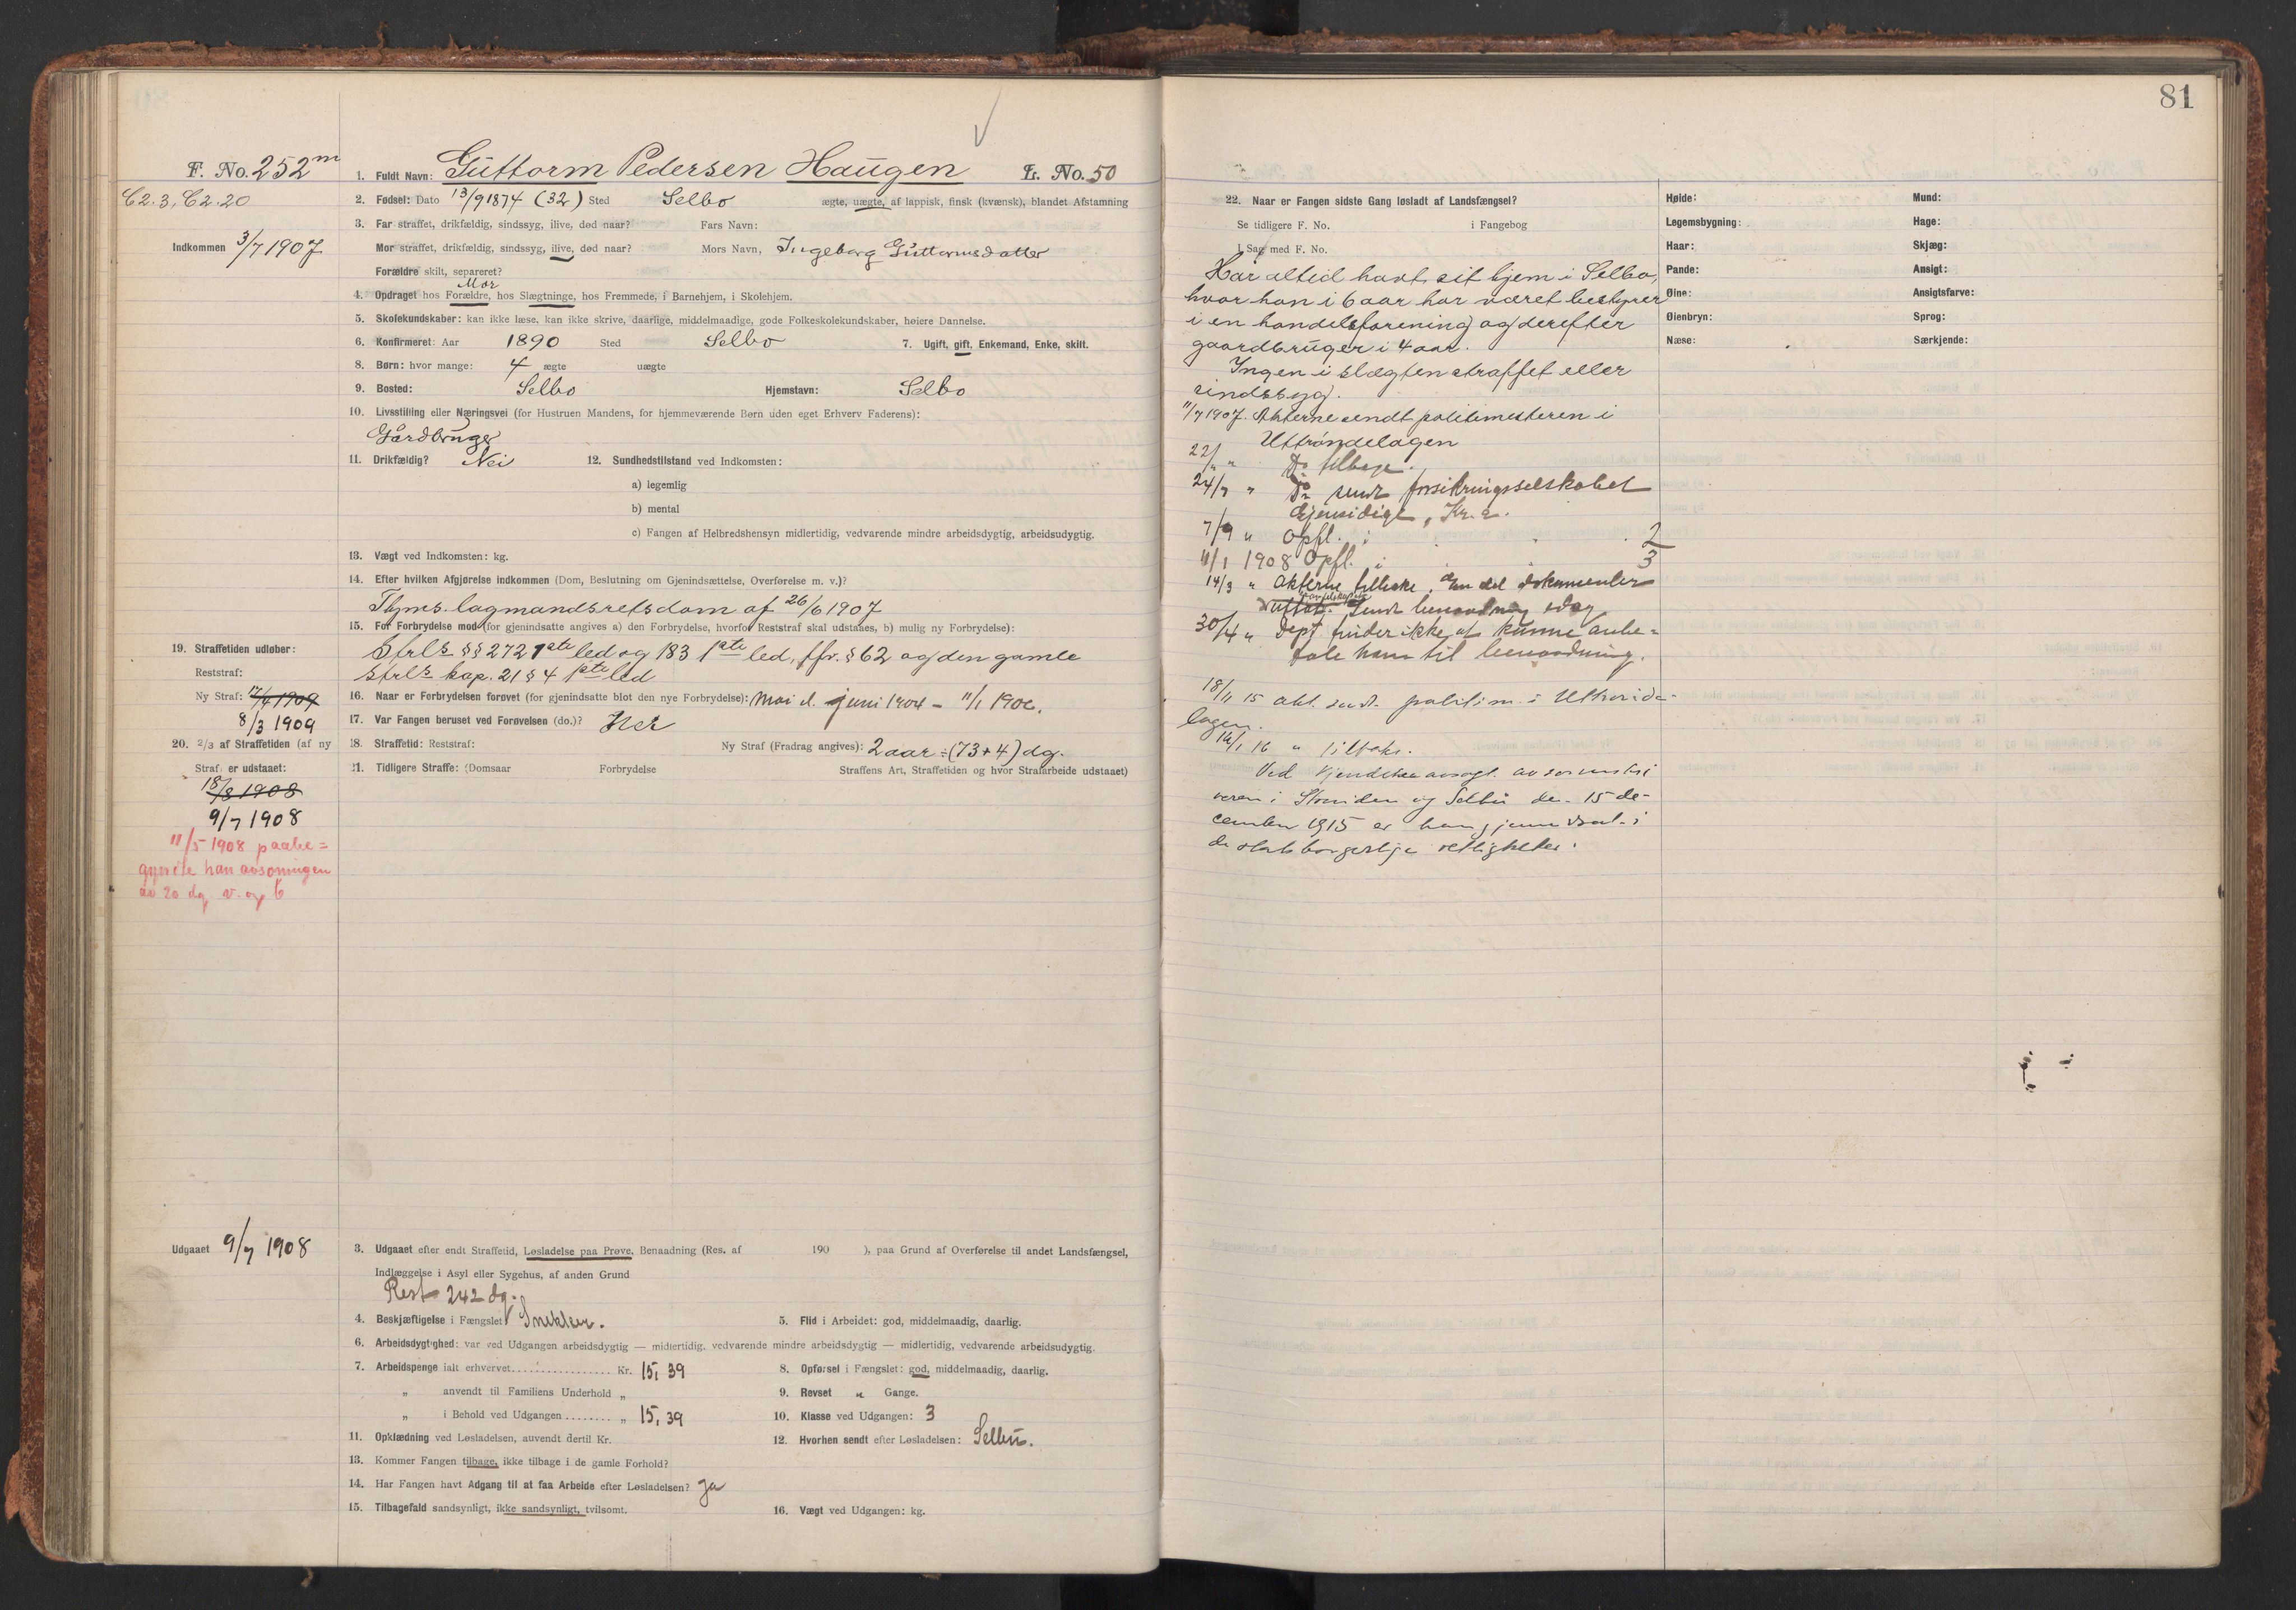 F. No. 252 m
C2.3, C2.20
Indkommen 3/7 1907
1. Fuldt Navn: Guttorm Pedersen Haugen L. No. 50
2. Fødsel: Dato 13/9 1874 (32) Sted Selbo ægte, uægte, af lappisk, finsk (kvænsk), blandet Afstamning
3. Far straffet, drikfældig, sindssyg, ilive, død naar? Fars Navn:
Mor straffet, drikfældig, sindssyg, ilive, død naar? Mors Navn, Ingeborg Guttormsdatter
Forældre skilt, separeret?
Mor
4. Opdraget hos Forældre, hos Slægtninge, hos Fremmede, i Barnehjem, i Skolehjem.
5. Skolekundskaber: kan ikke læse, kan ikke skrive, daarlige, middelmaadige, gode Folkeskolekundskaber, høiere Dannelse.
6. Konfirmeret: Aar 1890 Sted Selbo 7. Ugift, gift, Enkemand, Enke, skilt.
8. Børn: hvor mange: 4 ægte uægte
9. Bosted: Selbo Hjemstavn: Selbo
10. Livsstilling eller Næringsvei (for Hustruen Mandens, for hjemmeværende Børn uden eget Erhverv Faderens):
Gårdbruger
11. Drikfældig? Nei 12. Sundhedstilstand ved Indkomsten:
a) legemlig
b) mental
c) Fangen af Helbredshensyn midlertidig, vedvarende mindre arbeidsdygtig, arbeidsudygtig.
13. Vægt ved Indkomsten: kg.
14. Efter hvilken Afgjørelse indkommen (Dom, Beslutning om Gjenindsættelse, Overførelse m. v.)?
Thjms. lagmandsretsdom af 26/6 1907
15. For Forbrydelse mod (for gjenindsatte angives a) den Forbrydelse, hvorfor Reststraf skal udstaaes, b) mulig ny Forbrydelse):
Strls §§ 272 1ste led og 183 1ste led, jfr. § 62 og den gamle
strls kap. 21 § 4 1ste led
16. Naar er Forbrydelsen forøvet (for gjenindsatte blot den nye Forbrydelse): Mai el. juni 1904 – 11/1 1906.
17. Var Fangen beruset ved Forøvelsen (do.)? Nei
18. Straffetid: Reststraf: Ny Straf (Fradrag angives): 2 aar ÷ (73+4) dg.
21. Tidligere Straffe: (Domsaar Forbrydelse Straffens Art, Straffetiden og hvor Strafarbeide udstaaet)
19. Straffetiden udløber:
Reststraf:
Ny Straf: 17/4 1909
8/3 1909
20. 2/3 af Straffetiden (af ny
Straf) er udstaaet:
18/8 1908
9/7 1908
11/5 1908 paabe=
gyndte han avsoningen
av 20 dg. v. og b
Udgaaet 9/7 1908
3. Udgaaet efter endt Straffetid, Løsladelse paa Prøve, Benaadning (Res. af 190 ), paa Grund af Overførelse til andet Landsfængsel,
Indlæggelse i Asyl eller Sygehus, af anden Grund
Rest 242 dg.
4. Beskjæftigelse i Fængslet Snekker. 5. Flid i Arbeidet: god, middelmaadig, daarlig.
6. Arbeidsdygtighed: var ved Udgangen arbeidsdygtig — midlertidig, vedvarende mindre arbeidsdygtig — midlertidig, vedvarende arbeidsudygtig.
7. Arbeidspenge ialt erhvervet ................. Kr. 15,39 8. Opførsel i Fængslet: god, middelmaadig, daarlig.
„ anvendt til Familiens Underhold „ 9. Revset „ Gange.
„ i Behold ved Udgangen ........ „ 15,39 10. Klasse ved Udgangen: 3
11. Opklædning ved Løsladelsen, anvendt dertil Kr. 12. Hvorhen sendt efter Løsladelsen: Selbu.
13. Kommer Fangen tilbage, ikke tilbage i de gamle Forhold?
14. Har Fangen havt Adgang til at faa Arbeide efter Løsladelsen? Ja
15. Tilbagefald sandsynligt, ikke sandsynligt, tvilsomt. 16. Vægt ved Udgangen: kg.
81
22. Naar er Fangen sidste Gang løsladt af Landsfængsel?
Se tidligere F. No. i Fangebog
I Sag med F. No.
Har altid havt sit hjem i Selbo,
hvor han i 6 aar har været bestyrer
i en handelsforening og derefter
gaardbruger i 4 aar.
Ingen i slægten straffet eller
sindssyg.
11/7 1907. Akterne sendt politimesteren i
Uttrøndelagen
22/7 " Do tilbage.
24/7 " Do sendt forsikringsselskabet
Gjensidige, Kr.a.
7/9 " Opfl. i 2
11/1 1908 Opfl. i 3
14/3 " Akterne tilbake. En del dokumenter
Sendt benaadning idag
30/4 " Dept finder ikke at kunne anbe=
fale ham til benaadning.
18/11 15 akt. sendt politim. i Uttrønde-
lagen.
14/1 16 " tilbake.
Ved kjendelse avsagt av sorenskri
veren i Strinden og Selbu den 15 de-
cember 1915 er han gjenindsat i
de statsborgerlige rettigheter.
Høide: Mund:
Legemsbygning: Hage:
Haar: Skjæg:
Pande: Ansigt:
Øine: Ansigtsfarve:
Øienbryn: Sprog:
Næse: Særkjende: